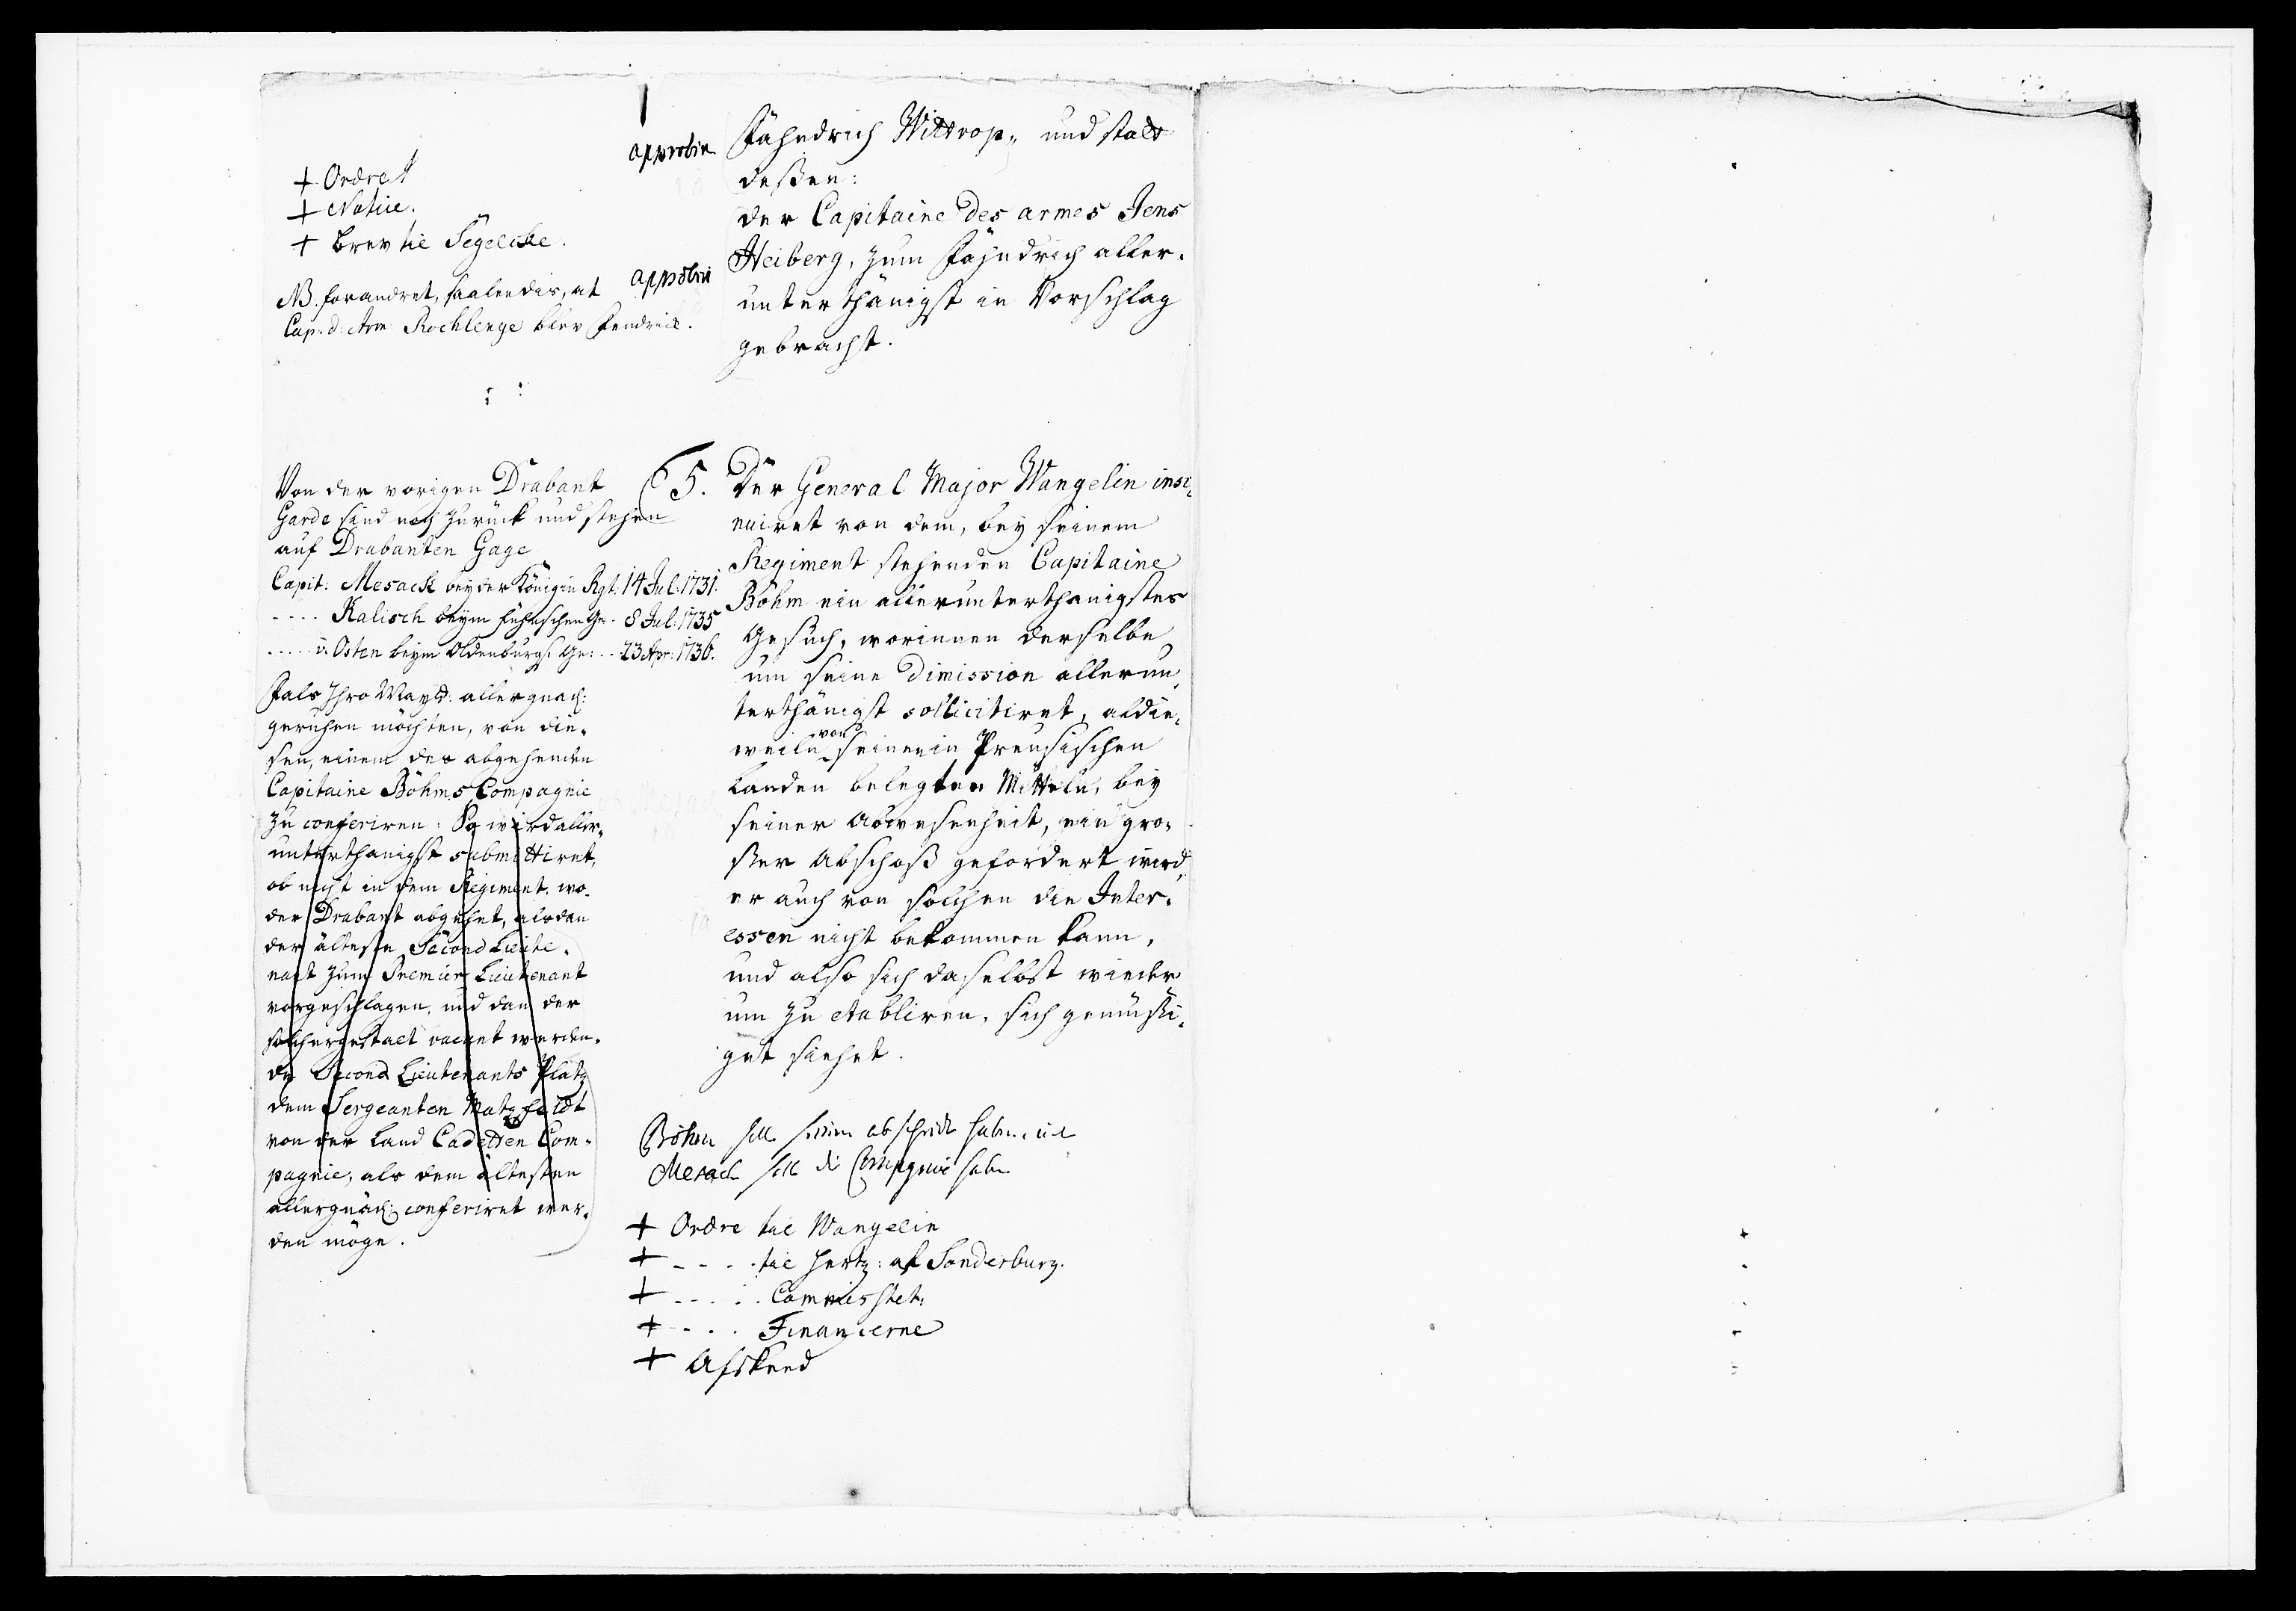 approbirt
+ Ordre
+ Notice.
+ brev til Segelcke.
NB. forandret, saaledis, at
Cap. d: Arm: Rochlenge blev Fendrick.
approbirt
Fähndrich Wittrop„ und statt
deßen:
der Capitaine des armes Jens
Heiberg, zum Fähndrich aller„
unterthänigst in Vorschlag
gebracht.
Von der vorigen Drabant
Garde sind noch zurück und stehen
auf Drabanten Gage
Capit: Mesack bey der Königin Rgt: 14 Jul: 1731.
---- Kalisch beym Fühnschen Ge. 8 Jul: 1735
----- v. Osten beym Oldenburgs: Ge: -- 23 Apr: 1736.
Fals Ihro Mayst: allergnäd:
geruhen möchten, von die„
sen, einem des abgehenden
Capitaine Böhms Compagnie
zu conferiren: So wird aller„
unterthänigst submittiret,
ob nicht in dem Regiment, wo„
der Drabant abgehet, alsdan
der älteste Second Lieute„
nant zum Premier Lieutenant
vorgeschlagen, und dan der
solchergestalt vacant werden„
de Second Lieutenants Platz
dem Sergeanten Matzfeldt
von der Land Cadetten Com„
pagnie, als dem ältesten
allergnäd: conferiret wer„
den möge.
5. Der General Major Wangelin insi„
nuiret von dem, bey seinem
Regiment stehenden Capitaine
Böhm ein allerunterthänigstes
Gesuch, worinnen derselbe
um seine Dimission allerun„
terthänigst sollicitiret, aldie„
weiln von seinen in Preusischen
Landen belegten Mitteln, bey
seiner Abwesenheit, ein gro„
ßer Abschoß gefordert wird,
er auch von solchen die Inter„
essen nicht bekommen kann,
und also sich daselbst wieder
um zu etabliren, sich gemüßi„
get siehet.
Böhm soll seinen abscheidt haben, und
Mesack soll die Compagnie haben
+ Ordre til Wangelin
+ - - - - til Hertz: af Sonderburg.
+ - - - - Commisstet:
+ - - - - Finanzerne
+ Afskeed